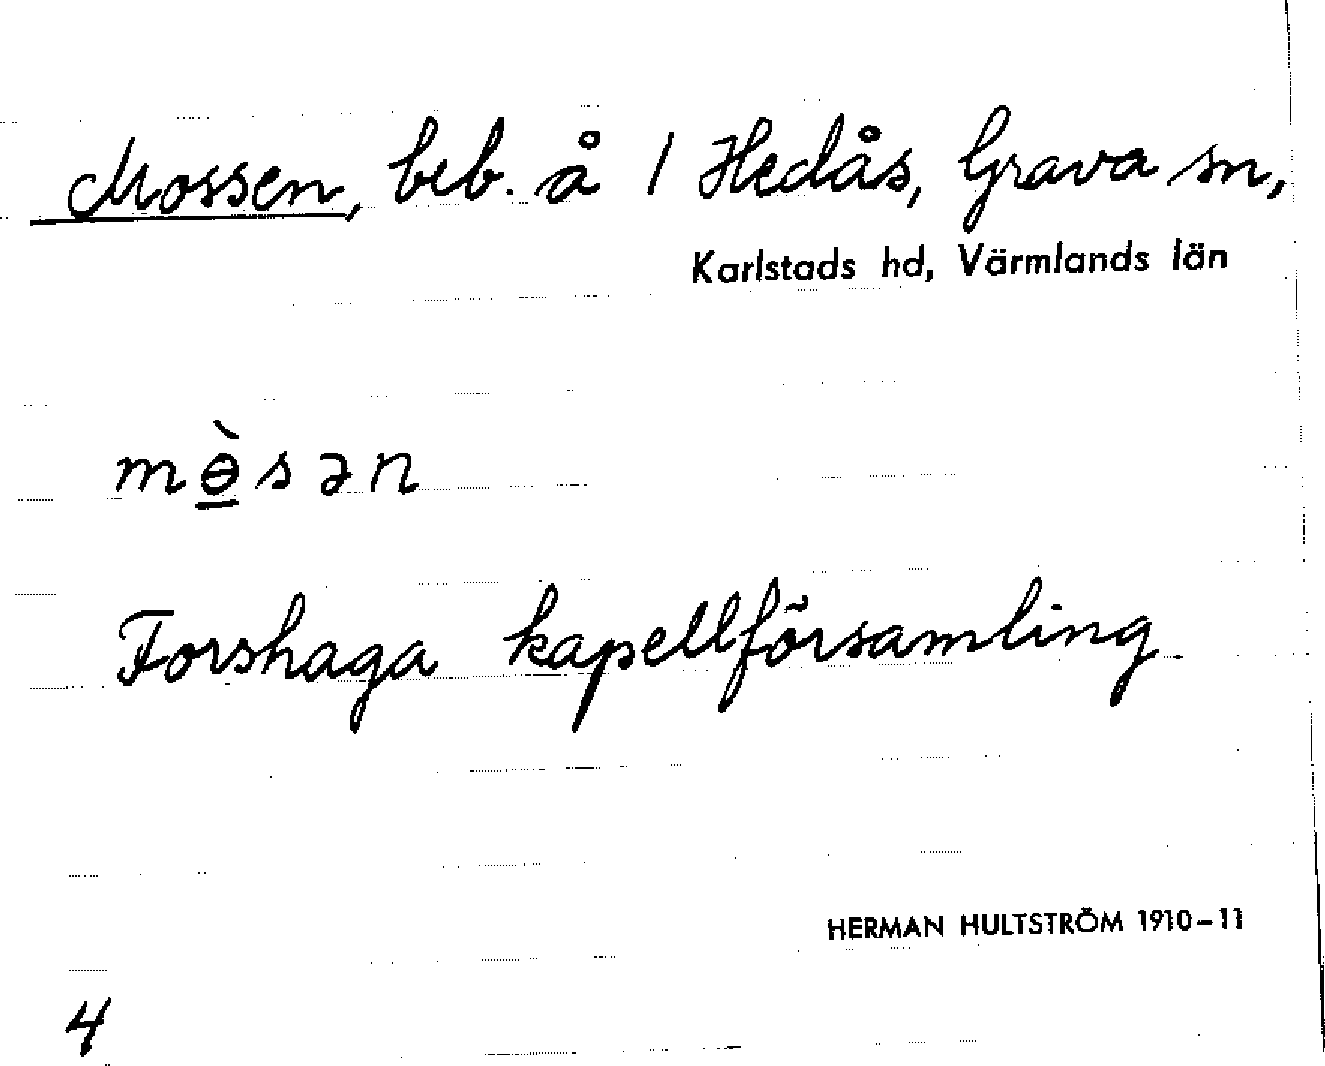 Mossen, beb. å 1 Hedås, Grava sn,
Karlstads hd, Värmlands län
mɵ̱̀sən
Forshaga kapellförsamling
HERMAN HULTSTRÖM 1910-11
4